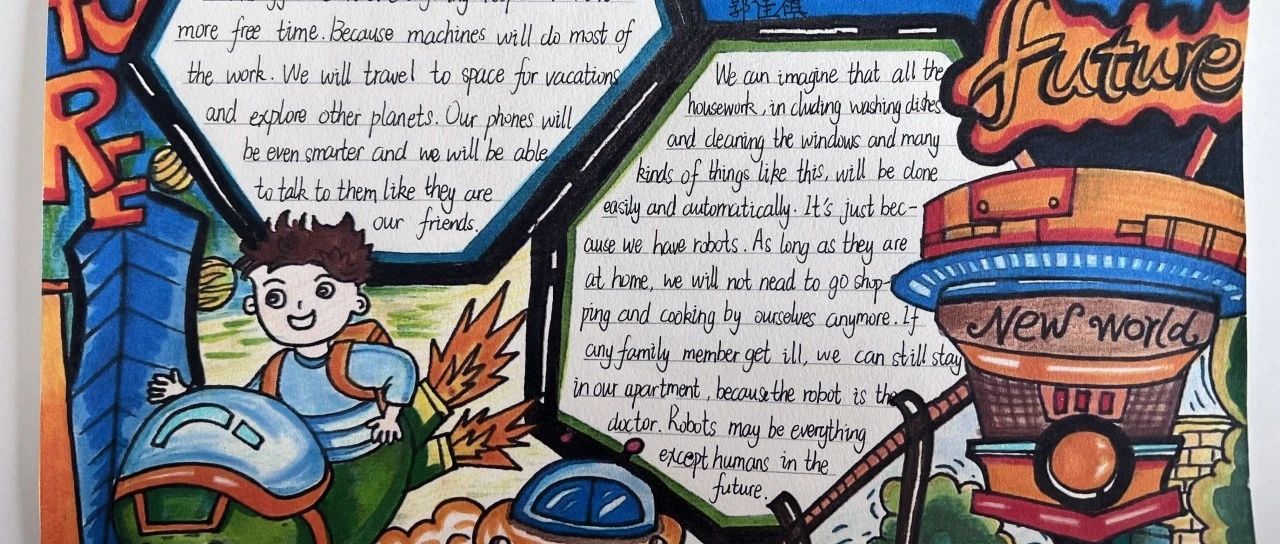 more free time. Because machines will do most of
the work. We will travel to space for vacations
and explore other planets. Our phones will
be even smarter and we will be able
to talk to them like they are
our friends.
郭佳祺
We can imagine that all the
housework, in cluding washing dishes
and cleaning the windows and many
kinds of things like this, will be done
easily and automatically. It's just bec-
ause we have robots. As long as they are
at home, we will not nead to go shop-
ping and cooking by ourselves anymore. If
any family member get ill, we can still stay
in our apartment, because the robot is the
doctor. Robots may be everything
except humans in the
future.
future
New world
RE